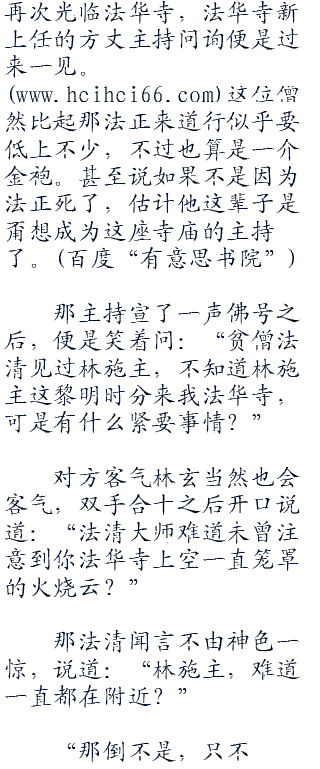 再次光临法华寺，法华寺新
上任的方丈主持问询便是过
来一见。
(www.hcihci66.com)这位僧
然比起那法正来道行似乎要
低上不少，不过也算是一介
金袍。甚至说如果不是因为
法正死了，估计他这辈子是
甭想成为这座寺庙的主持
了。(百度“有意思书院”)
那主持宣了一声佛号之
后，便是笑着问：“贫僧法
清见过林施主，不知道林施
主这黎明时分来我法华寺，
可是有什么紧要事情？”
对方客气林玄当然也会
客气，双手合十之后开口说
道：“法清大师难道未曾注
意到你法华寺上空一直笼罩
的火烧云？”
那法清闻言不由神色一
惊，说道：“林施主，难道
一直都在附近？”
“那倒不是，只不